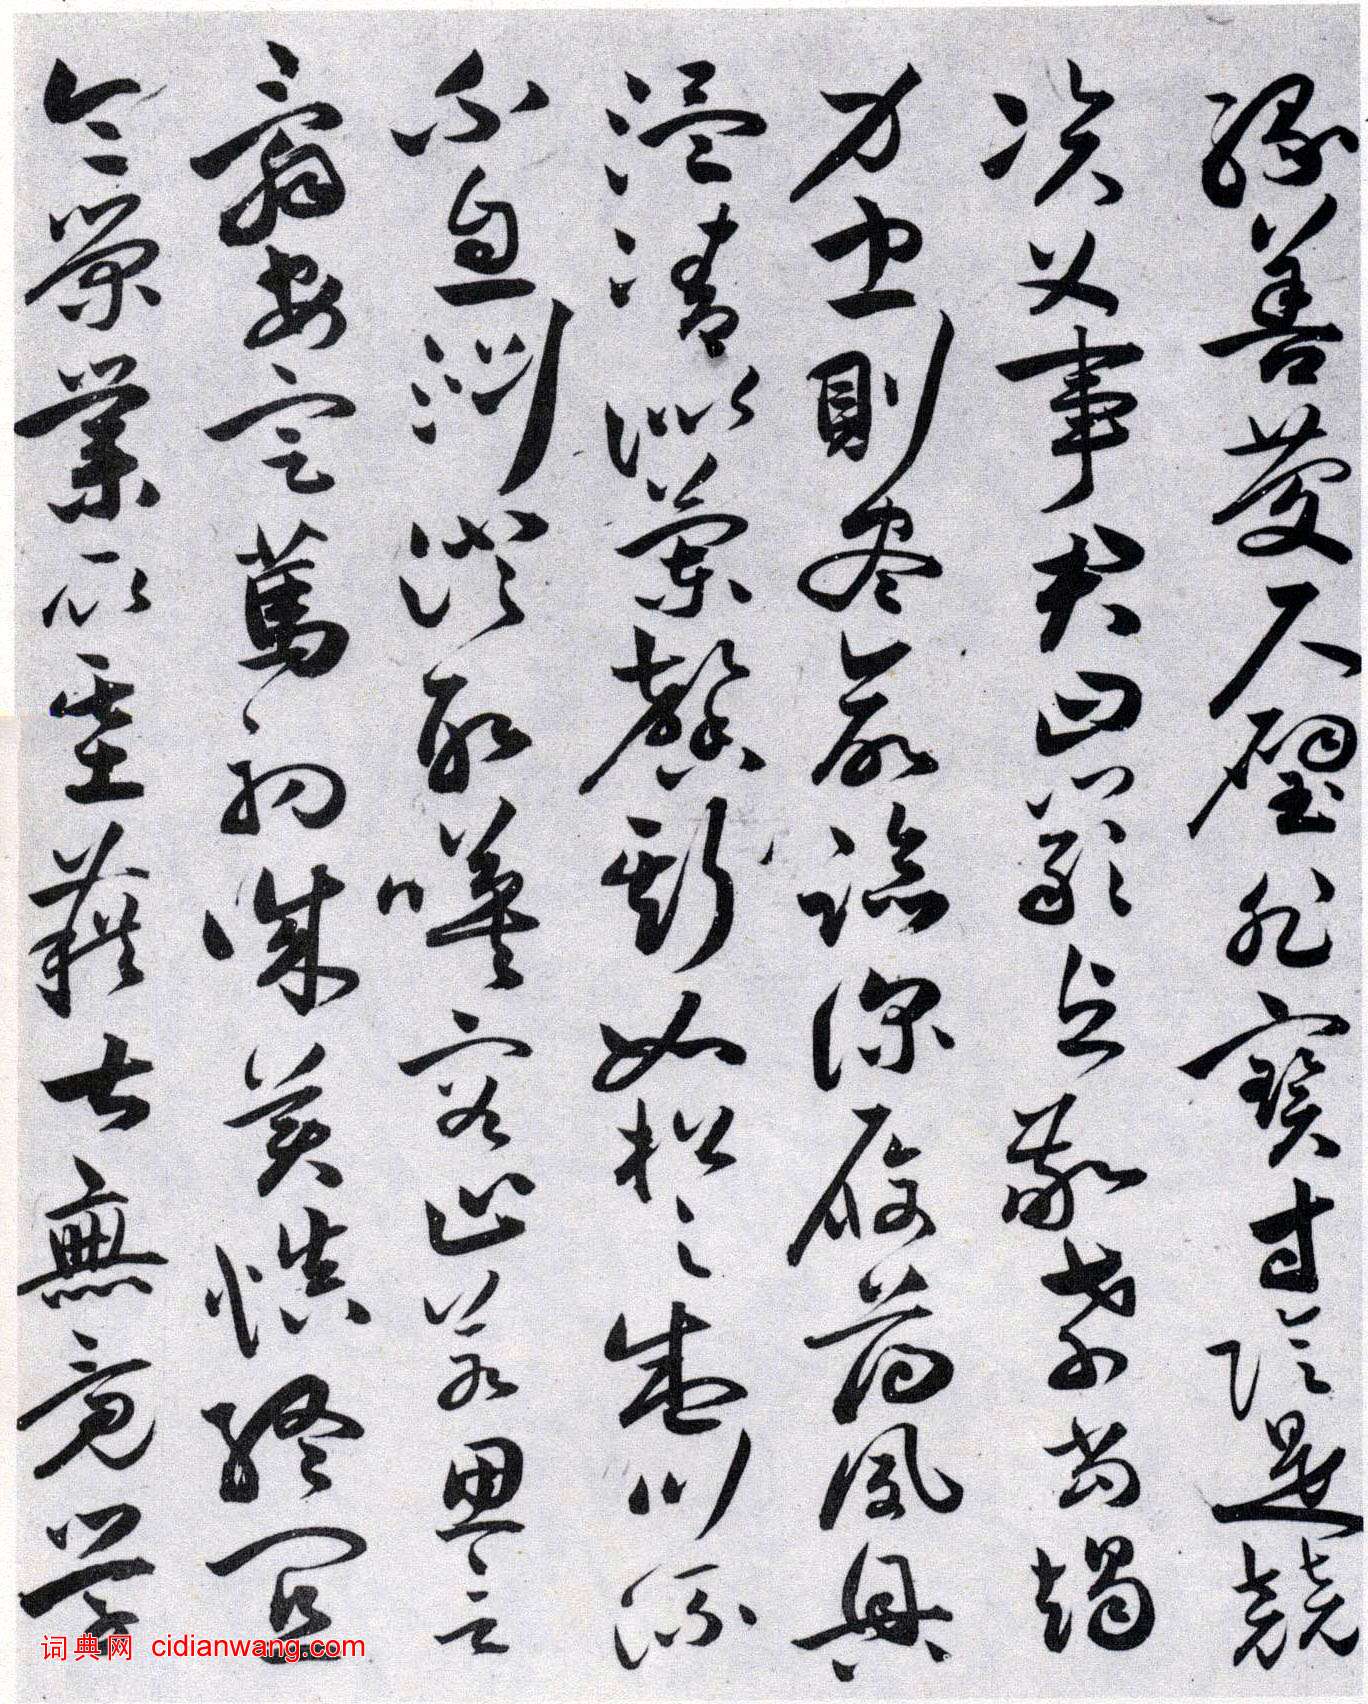 緣善慶尺璧非寶寸陰是競
資父事君曰嚴与敬孝當竭
力忠則盡命臨深履薄夙興
溫清似蘭馨斯如松之盛川流
不息淵澄取暎容止若思言
辭安定篤初誠美慎終宜
令榮業所基藉甚無竟學
词典网 cidianwang.com